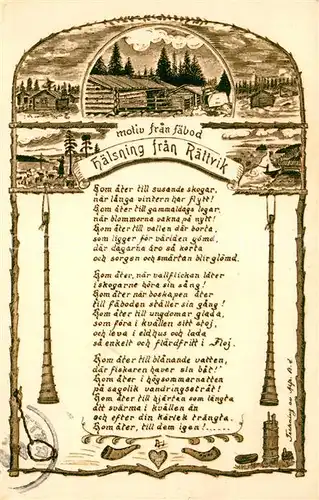 motiv från fäbod
Hälsning från Rättvik
Kom åter till susande skogar,
när långa vintern har flytt!
Kom åter till gammaldags seder,
när blommorna vakna på nytt!
Kom åter till vallen där borta,
som ligger för världen gömd,
där dagarna äro så korta
och sorgen och smärtan blir glömd.
Kom åter, när vallflickan låter
i skogarne höra sin sång!
Kom åter när boskapen åter
till fäboden ställer sin gång!
Kom åter till ungdomar glada,
som föra i kvällen sitt stoj,
och leva i eldhus och lada
så enkelt och flärdfritt i Floj.
Kom åter till blånande vatten,
där fiskaren haver sin båt!
Kom åter i högsommernatten
på sagolik vandringsstråt!
Kom åter till hjärtan som längta
att svärma i kvällen än
och efter din kärlek trängta.
Kom åter, till dem igen!......
Teckning av